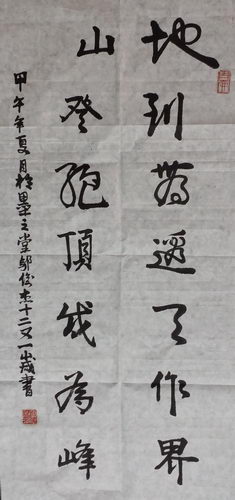 地到無邊天作界
山登絕頂我為峰
甲午年夏月於墨之堂俊杰十二又一歲書